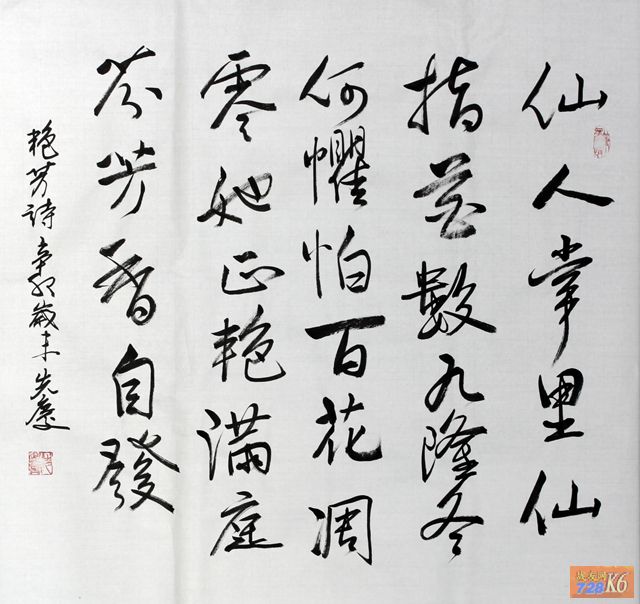 仙人掌里仙
指苍数九隆冬
何惧怕百花凋
零她正艳满庭
芬芳香自發
艳芳詩辛卯歲末先慶
战友网
728K6